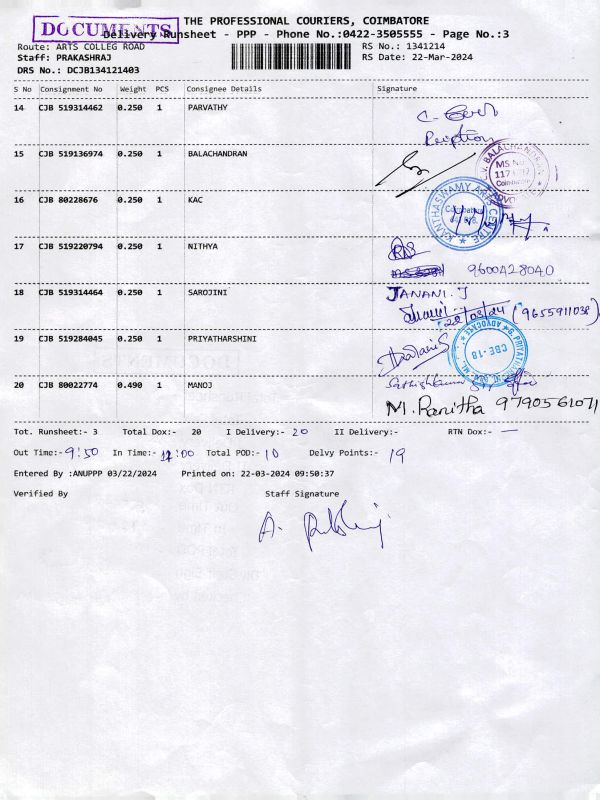 DOCUMENTS
THE PROFESSIONAL COURIERS, COIMBATORE
Delivery Runsheet - PPP - Phone No.:0422-3505555 - Page No.:3
Route: ARTS COLLEG ROAD
RS No.: 1341214
Staff: PRAKASHRAJ
RS Date: 22-Mar-2024
DRS No.: DCJB134121403
S No Consignment No Weight PCS Consignee Details Signature
14 CJB 519314462 0.250 1 PARVATHY
Reception
15 CJB 519136974 0.250 1 BALACHANDRAN
C.V. BALACHANDRAN
MS.No
Coimbatore
ADVO
16 CJB 80228676 0.250 1 KAC
KANTHASWAMY ARTS CENTRE
Coimbatore
17 CJB 519220794 0.250 1 NITHYA
9600428040
18 CJB 519314464 0.250 1 SAROJINI
JANANI. J
22/03/24 (9655911038)
19 CJB 519284045 0.250 1 PRIYATHARSHINI
ADVOCATE
CBE-18
20 CJB 80022774 0.490 1 MANOJ
M. Ranitha 9790561071
Tot. Runsheet:- 3 Total Dox:- 20 I Delivery:- 20 II Delivery:- RTN Dox:- —
Out Time:- 9:50 In Time:- 12:00 Total POD:- 10 Delvy Points:- 19
Entered By :ANUPPP 03/22/2024 Printed on: 22-03-2024 09:50:37
Verified By Staff Signature